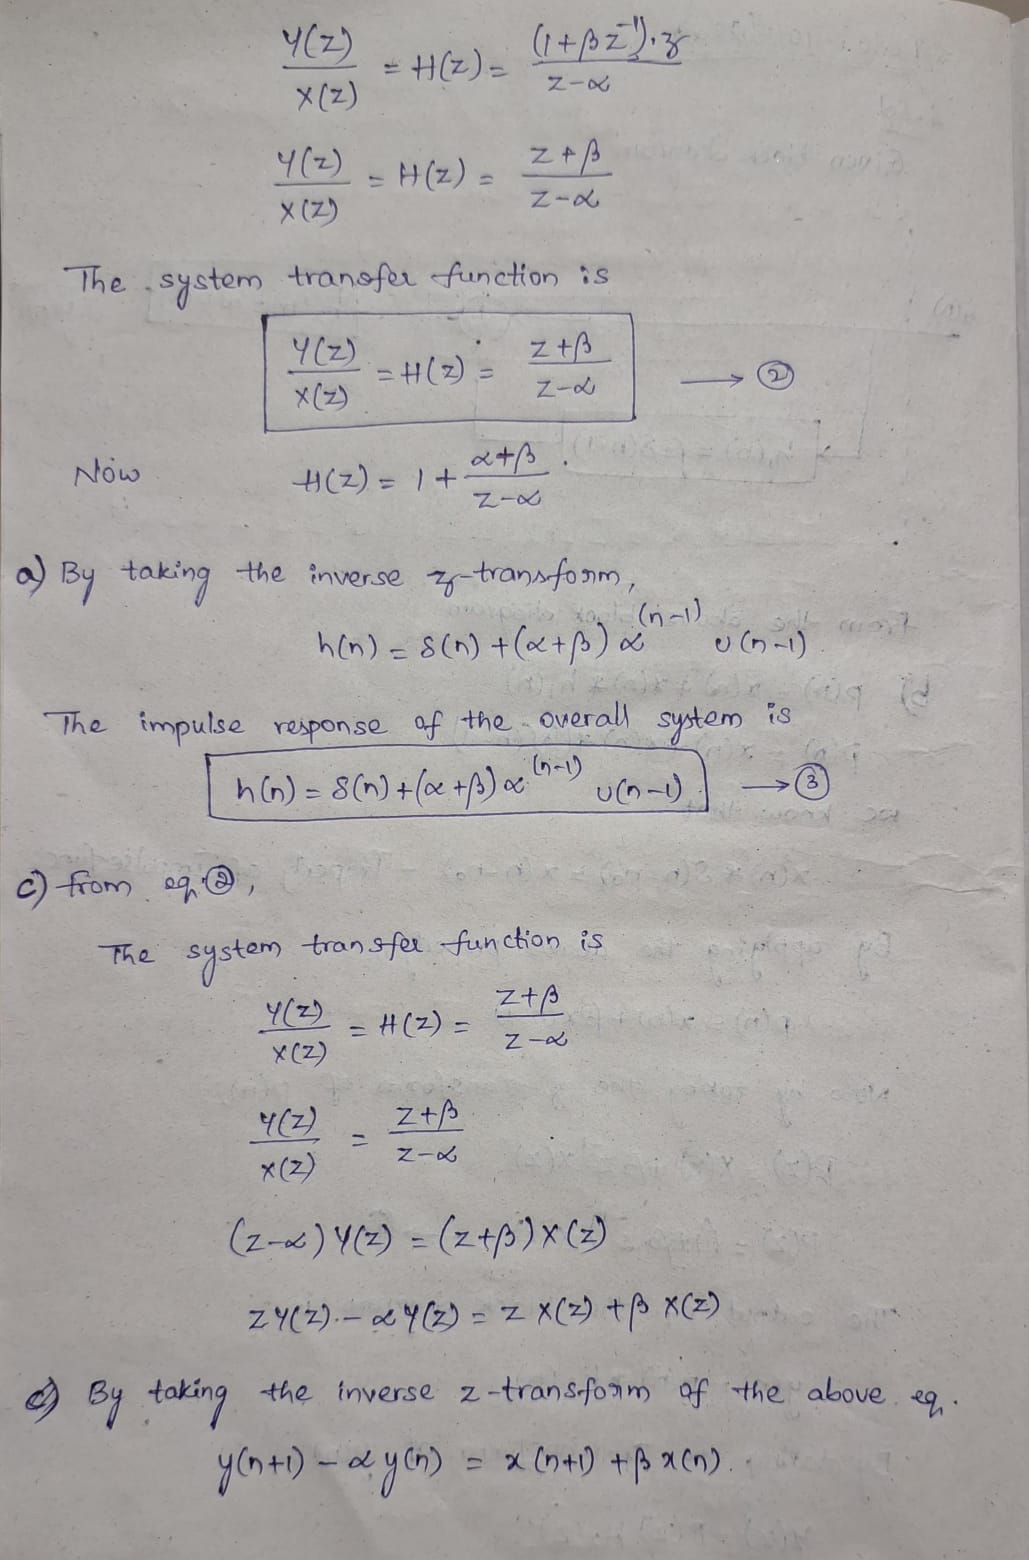 Y(Z)/X(Z) = H(Z) = (1+βZ⁻¹).z/Z-α
Y(Z)/X(Z) = H(Z) = Z+β/Z-α
The system transfer function is
Y(Z)/X(Z) = H(Z) = Z+β/Z-α → ②
Now H(Z) = 1 + α+β/Z-α
a) By taking the inverse z-transform,
h(n) = δ(n) + (α+β) α^(n-1) u(n-1)
The impulse response of the overall system is
h(n) = δ(n) + (α+β) α^(n-1) u(n-1) → ③
c) from eq ②,
The system transfer function is
Y(Z)/X(Z) = H(Z) = Z+β/Z-α
Y(Z)/X(Z) = Z+β/Z-α
(Z-α) Y(Z) = (Z+β) X(Z)
Z Y(Z) - α Y(Z) = Z X(Z) + β X(Z)
By taking the inverse z-transform of the above eq.
y(n+1) - α y(n) = x(n+1) + β x(n).